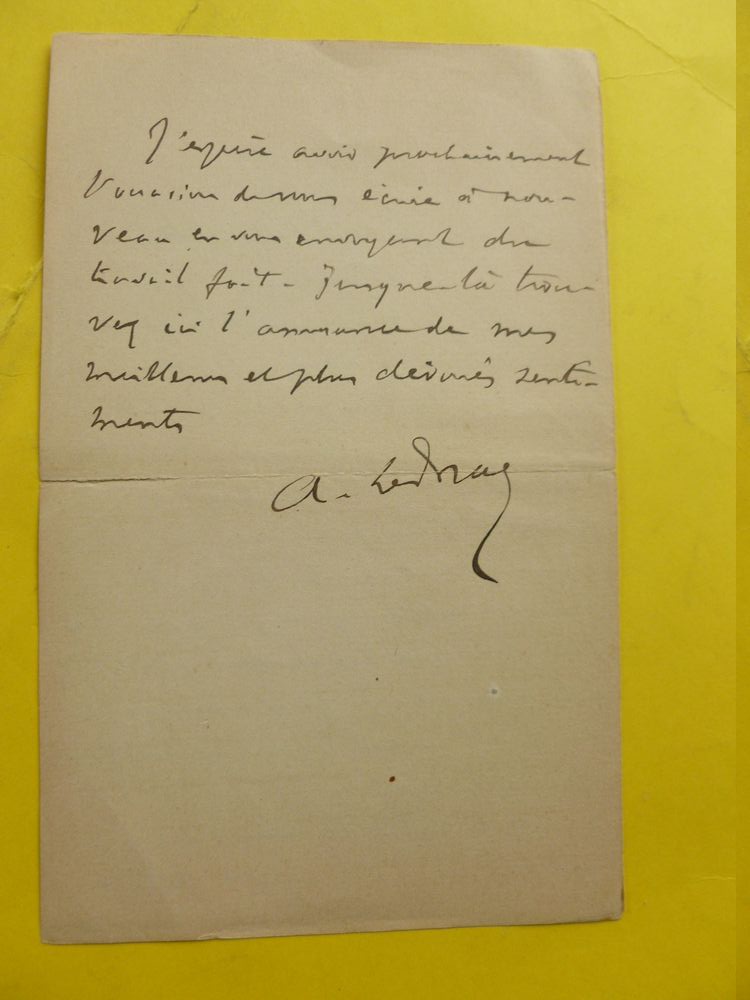 J'espère avoir prochainement
l'occasion de vous écrire à nou-
veau en vous envoyant du
travail fait. Jusque-là trou-
vez ici l'assurance de mes
meilleurs et plus dévoués senti-
ments
A. Ledrag